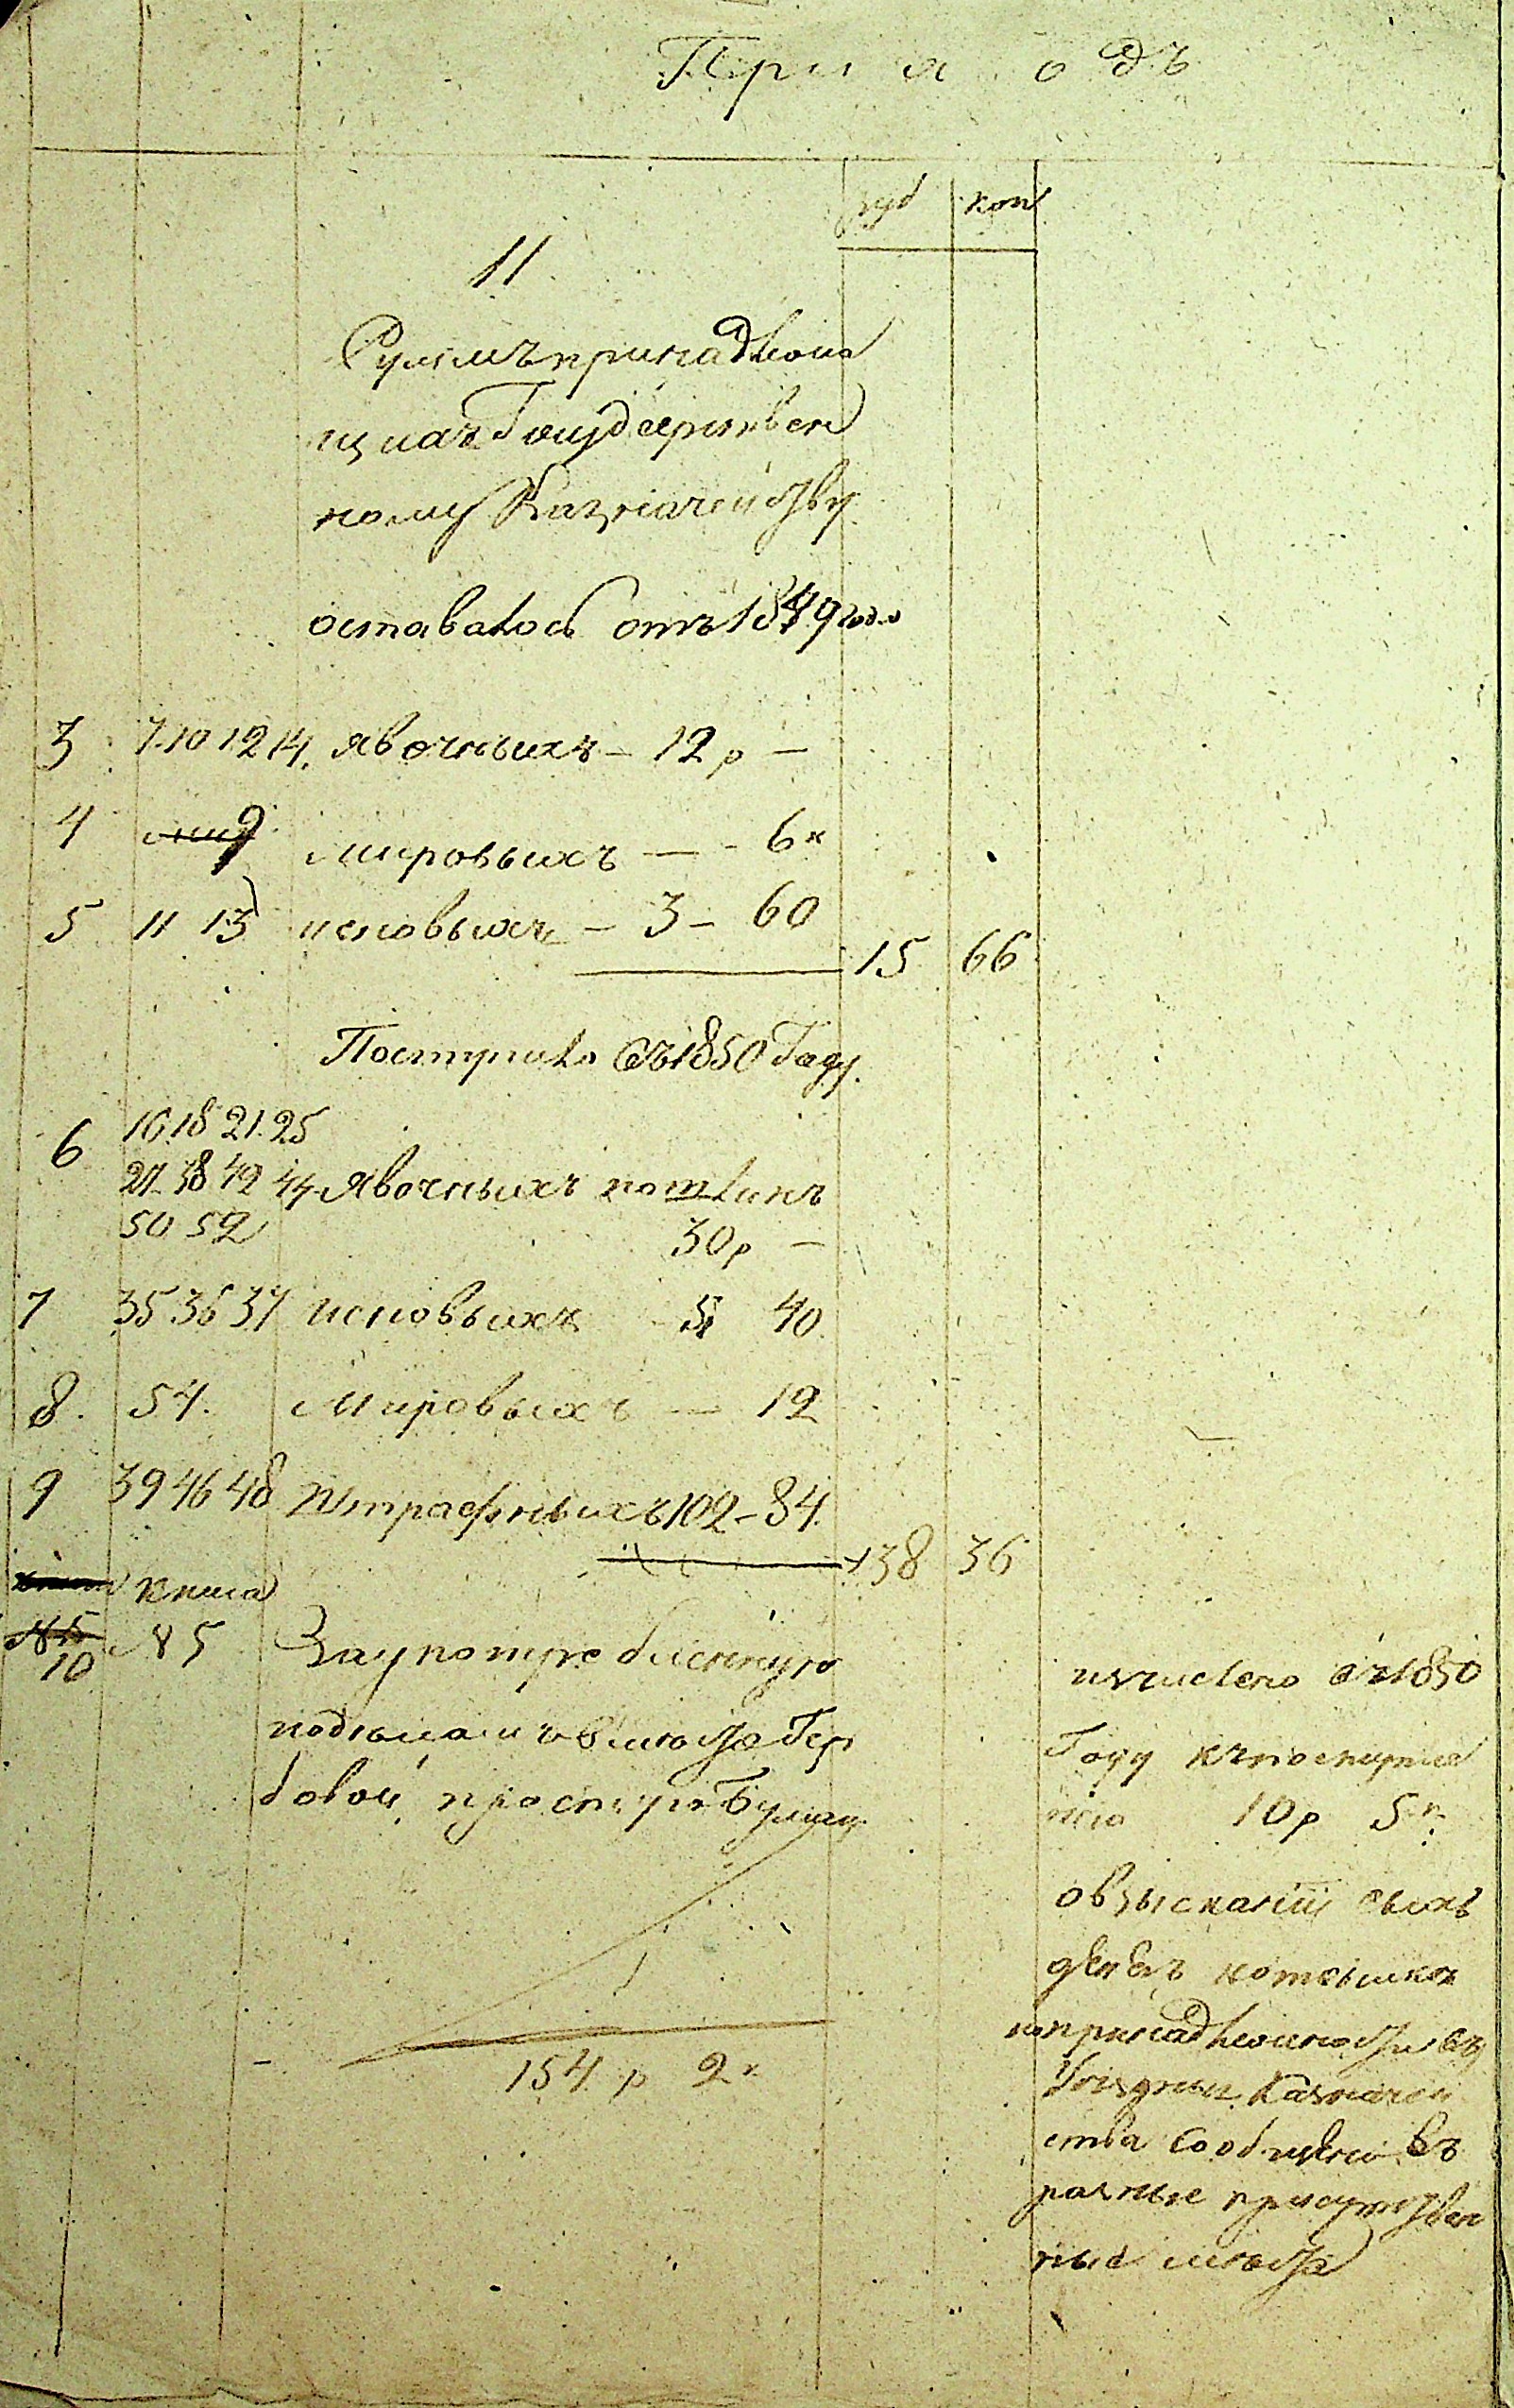 Приходъ
руб коп
11
Суммъ принадлежа
щихъ Государствен
ному Казначейству
оставалось отъ 1849 года
3 7 10 12 14. явочныхъ – 12 р –
4 9 мировыхъ — - 6 к
5 11 13 исковыхъ – 3 – 60
15 66
Поступило въ 1850 Году.
6 16. 18 21. 25
27. 38 42 44 явочныхъ пошлинъ
50 52 30 р –
7 35 36 37 исковыхъ 5 40
8. 54. Мировыхъ — 12
9 39 46 48 Штрафныхъ 102 – 84.
138 36
книга
№ 5
10 № 5 За употребленную
бовой простую бумагу
154 р 2 к
исчислено въ 1850
Году къ поступле
нію 10 р 5 к.
о взысканіи сихъ
денегъ
по принадлежности въ
Уездныи Казначей
ства Сообщено въ
разные присутствен
ные места